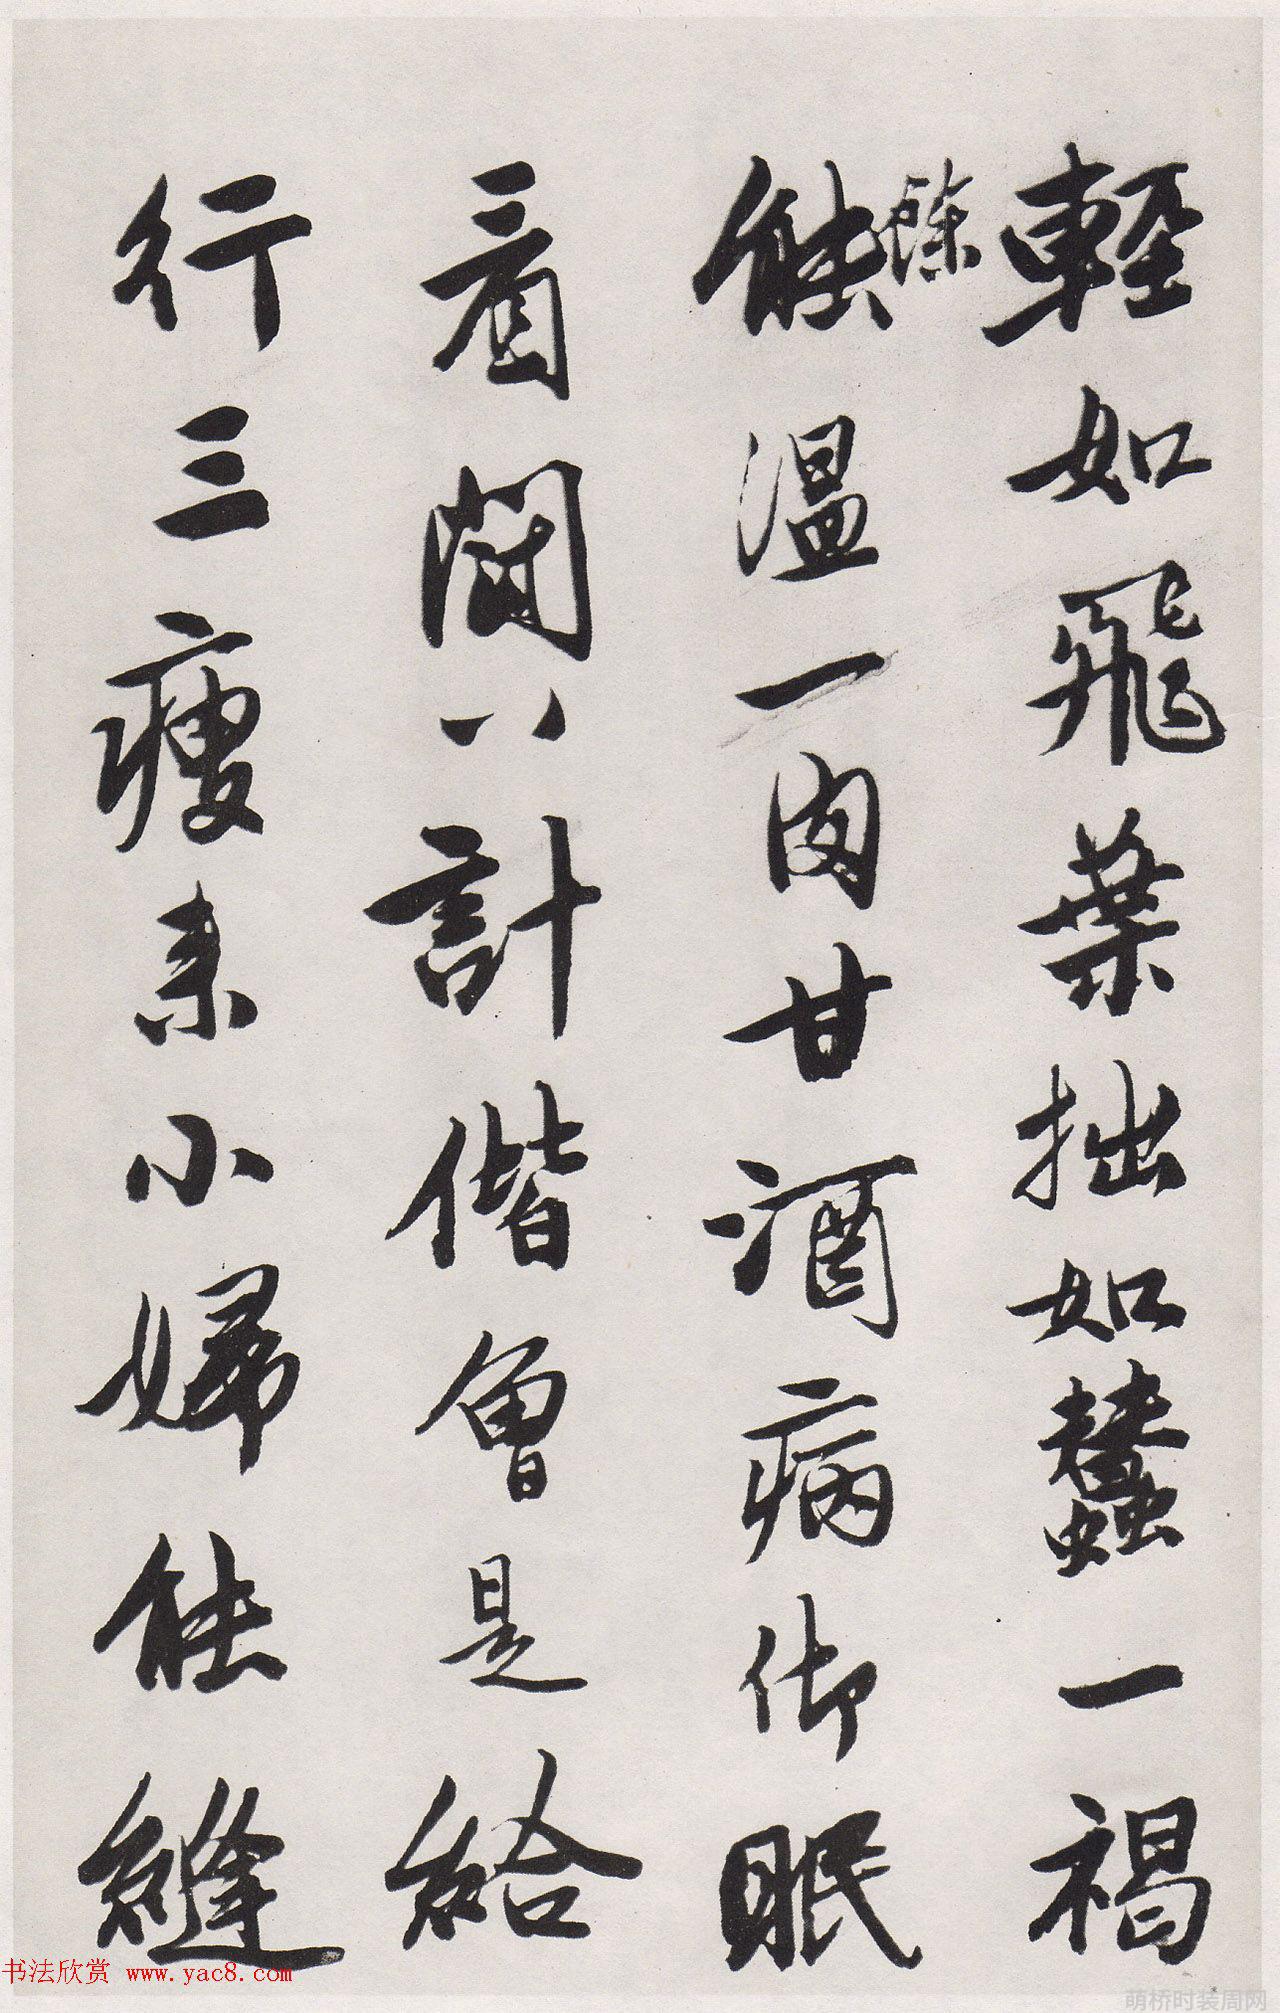 輕如飛葉拙如蠶一褐
餘
能溫一肉甘酒病御眠
看鬪八計偕曾是給
行三瘦來小婦能縫
书法欣赏 www.yac8.com
萌桥时装周网